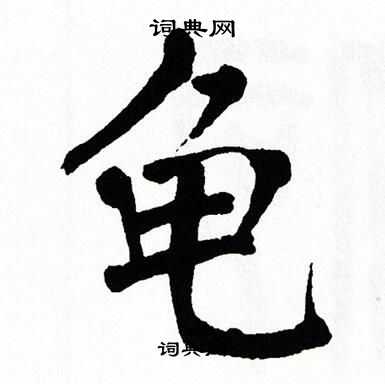 词典网
龟
词典